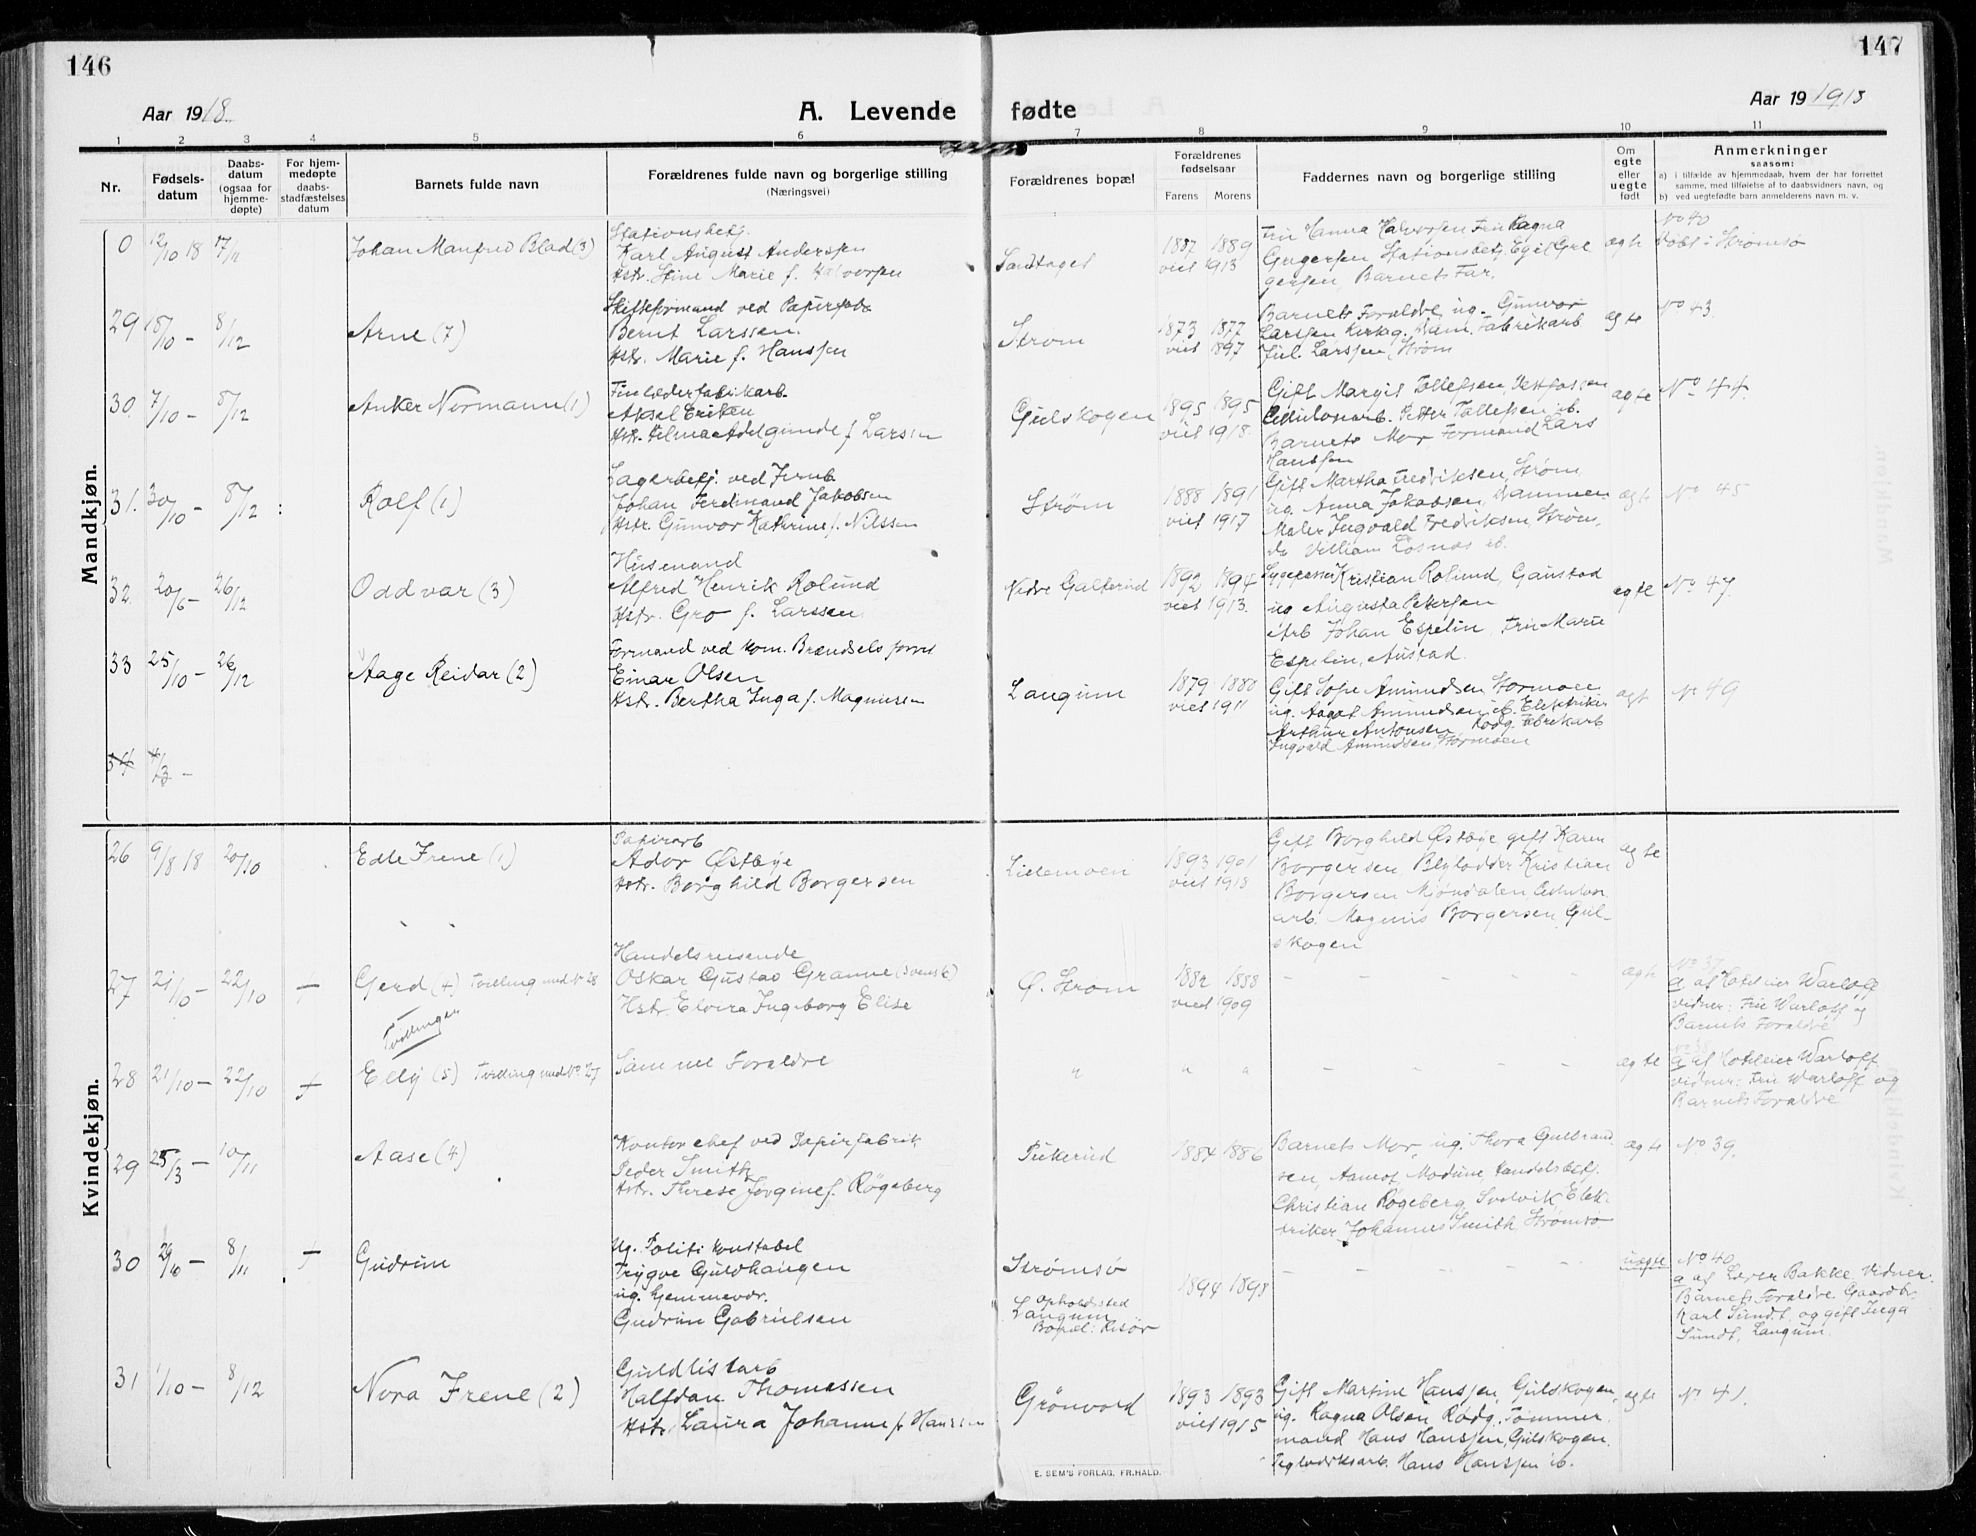 146
147
Aar 1918.
A. Levende fødte
Aar 191918
1 2 3 4 5 6 7 8 9 10 11
Nr.
Fødsels-
datum
Daabs-
datum
(ogsaa for
hjemme-
døpte)
For hjem-
medøpte
daabs-
stadfæstelses
datum
Barnets fulde navn
Forældrenes fulde navn og borgerlige stilling
(Næringsvei)
Forældrenes bopæl
Forældrenes
fødselsaar
Farens Morens
Faddernes navn og borgerlige stilling
Om
egte
eller
uegte
født
Anmerkninger
saasom:
a) i tilfælde av hjemmedaab, hvem der har forrettet
samme, med tilføielse af to daabsvidners navn, og
b) ved uegtefødte barn anmelderens navn m. v.
Mandkjøn.
0 12/10 18 17/11 Johan Manfred Blad (3)
Stationsbetj.
Karl August Andersen
Hstr. Stine Marie f. Halvorsen
1887 1889
viet 1913
Fru Hanna Halvorsen Fru Ragna
Gregersen Stationsbetj. Egil Gre
gersen, Barnets Far.
ægte
No 40
Døbt i Strømsø
29 18/10 – 8/12 Arne (7)
Skifteformand ved Papirfab.
Bernt Larssen.
Hstr. Marie f. Hanssen
Strøm
1873 1877
viet 1897
Barnets Foraldre, ug. Gunvor
Larssen Fabrikarb
Jul. Larssen, Strøm
ægte
No 43.
30 7/10 – 8/12 Anker Normann (1)
Finlæderfabrikarb.
Aksel Eriksen
Hstr. Helma Adelgunde f. Larsen
Gulskogen
1895 1895
viet 1918.
Gift Margit Tollefsen, Vestfossen
Cellulosarb. Petter Tollefsen ib.
Barnets Mor Formand Lars
Hanssen
ægte
No 44.
31. 30/10 – 8/12 Rolf (1)
Lagerbetj. ved Jernb
Johan Ferdinand Jakobsen
Hstr. Gunvor Kathrine f. Nilssen
Strøm
1888 1891
viet 1917
Gift Martha Fredriksen, Strøm
ug. Anna Jakobsen, Drammen
Maler Ingvald Fredriksen, Strøm,
do William Losnæs ib.
ægt
No 45
32 20/6 – 26/12 Oddvar (3)
Husmand
Alfred Henrik Rolund
Hstr. Gro f. Larssen
Nedre Galterud
1892 1894
viet 1913.
Kristian Rolund, Gaustad
ug Augusta Petersen
Arb Johan Espelin, Fru Marie
Espelin, Austad.
ægte
No 47.
33 25/10 – 26/12 Aage Reidar (2)
Formand ved kom. Brændsels forret
Einar Olsen
Hstr. Bertha Inga f. Magnussen
Langum
1879 1880
viet 1911
Gift Sofie Amundsen Stormoen
ug. Aagot Amundsen ib. Elektriker
Arthur Antonsen Rødg. Fabrikarb
Ingvald Amundsen, Stormoen
ægt
No 49
34 –
Kvindekjøn.
26 9/8 18 20/10 Edle Irene (1)
Papirarb
Ador Østbye
Hstr. Borghild Borgersen
Liermoen
1893 1901
viet 1918
Gift Borghild Østbye gift Karen
Borgersen, Kristian
Borgersen Mjøndalen, Cellulos
arb. Magnus Borgersen, Gul-
skogen
ægte
27 21/10 – 22/10 + Gerd (4) Tvilling med No 28
Tvillinger
Handelsreisende
Oskar Gustav Granne (svensk)
Hstr Elvira Ingeborg Elise
Ø. Strøm
1882 1888
viet 1909
– – – –
ægte
No 37
a af Hoteleier Warloff
vidner: Fru Warloff og
Barnets Foraldre
28 21/10 – 22/10 + Elly (5) Tvilling med No 27
Samme Foraldre
" " "
– – – –
ægte
No 38
a af Hoteleier Warloff
vidner: Fru Warloff og
Barnets Foraldre
29 25/3 – 10/11 Aase (4)
Kontorchef ved Papirfabrik
Peder Smith
Hstr. Therese Jorgine f. Røgeberg
Pukerud
1884 1886
Barnets Mor, ug. Thora Gulbrand
sen, Aamot Modum, Handelsbetj.
Christian Røgeberg, Svelvik Elek-
triker Johannes Smith, Strømsø
ægte
No 39.
30 8/11 + Gudrun
Ug. Politi konstabel
Trygve Guldhaugen
ug. Hjemmevær.
Gudrun Gabrielsen
Strømsø
Opholdssted
Langum
Bopæl: Risør
1894 1898
– – – –
uægte
No 40
a af Lærer Bakke Vidner:
Barnets Foraldre. Gaardbr.
Karl Sundt, og gift Inga
Sundt, Langum.
31 1/10 – 8/12 Nora Irene (2)
Guldlistarb
Halfdan Thomassen
Hstr. Laura Johanne f. Hanssen
Grønvold
1893 1893
viet 1915
Gift Martine Hanssen, Gulskogen,
ug. Ragna Olsen Rødg. Tømmer
mand Hans Hanssen, Gulskogen.
Teglverksarb. Hans Hanssen ib.
ægte
No 41.
E. SEM'S FORLAG, FR.HALD.